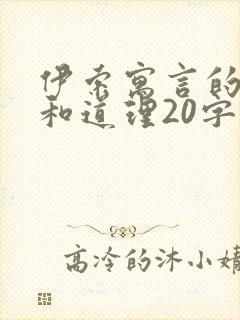 伊索寓言的
和道理20字
高冷的沐小婧